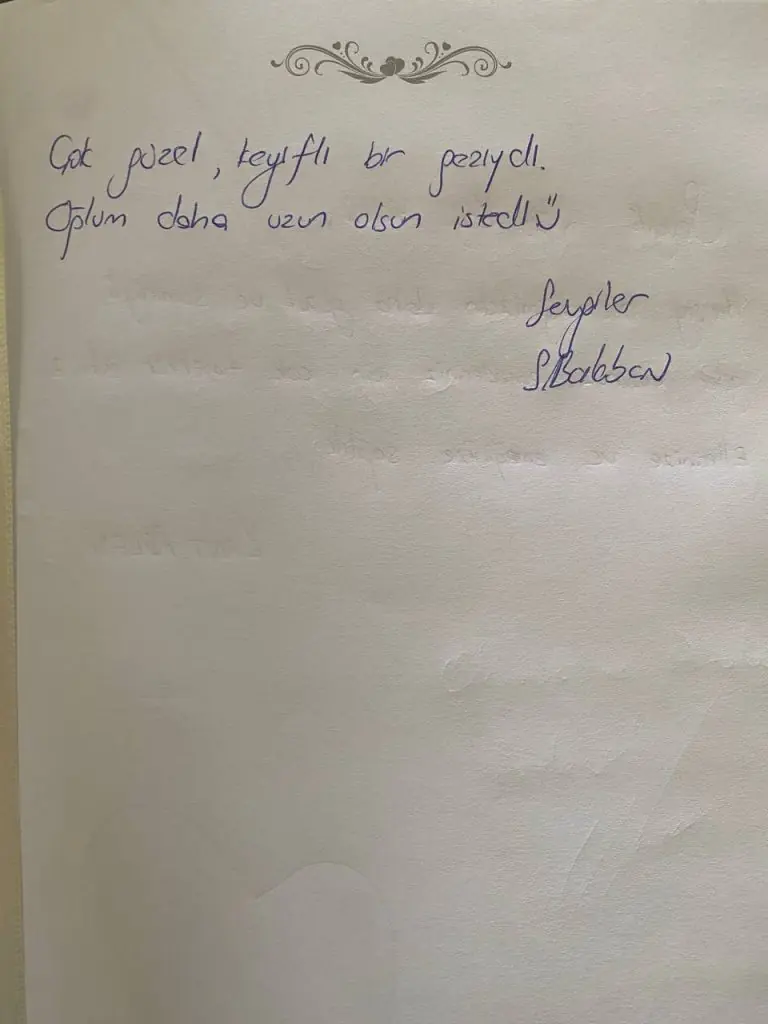 Çok güzel, keyifli bir geziydi.
Oğlum daha uzun olsun istedi ü
Sevgiler
S. Balaban